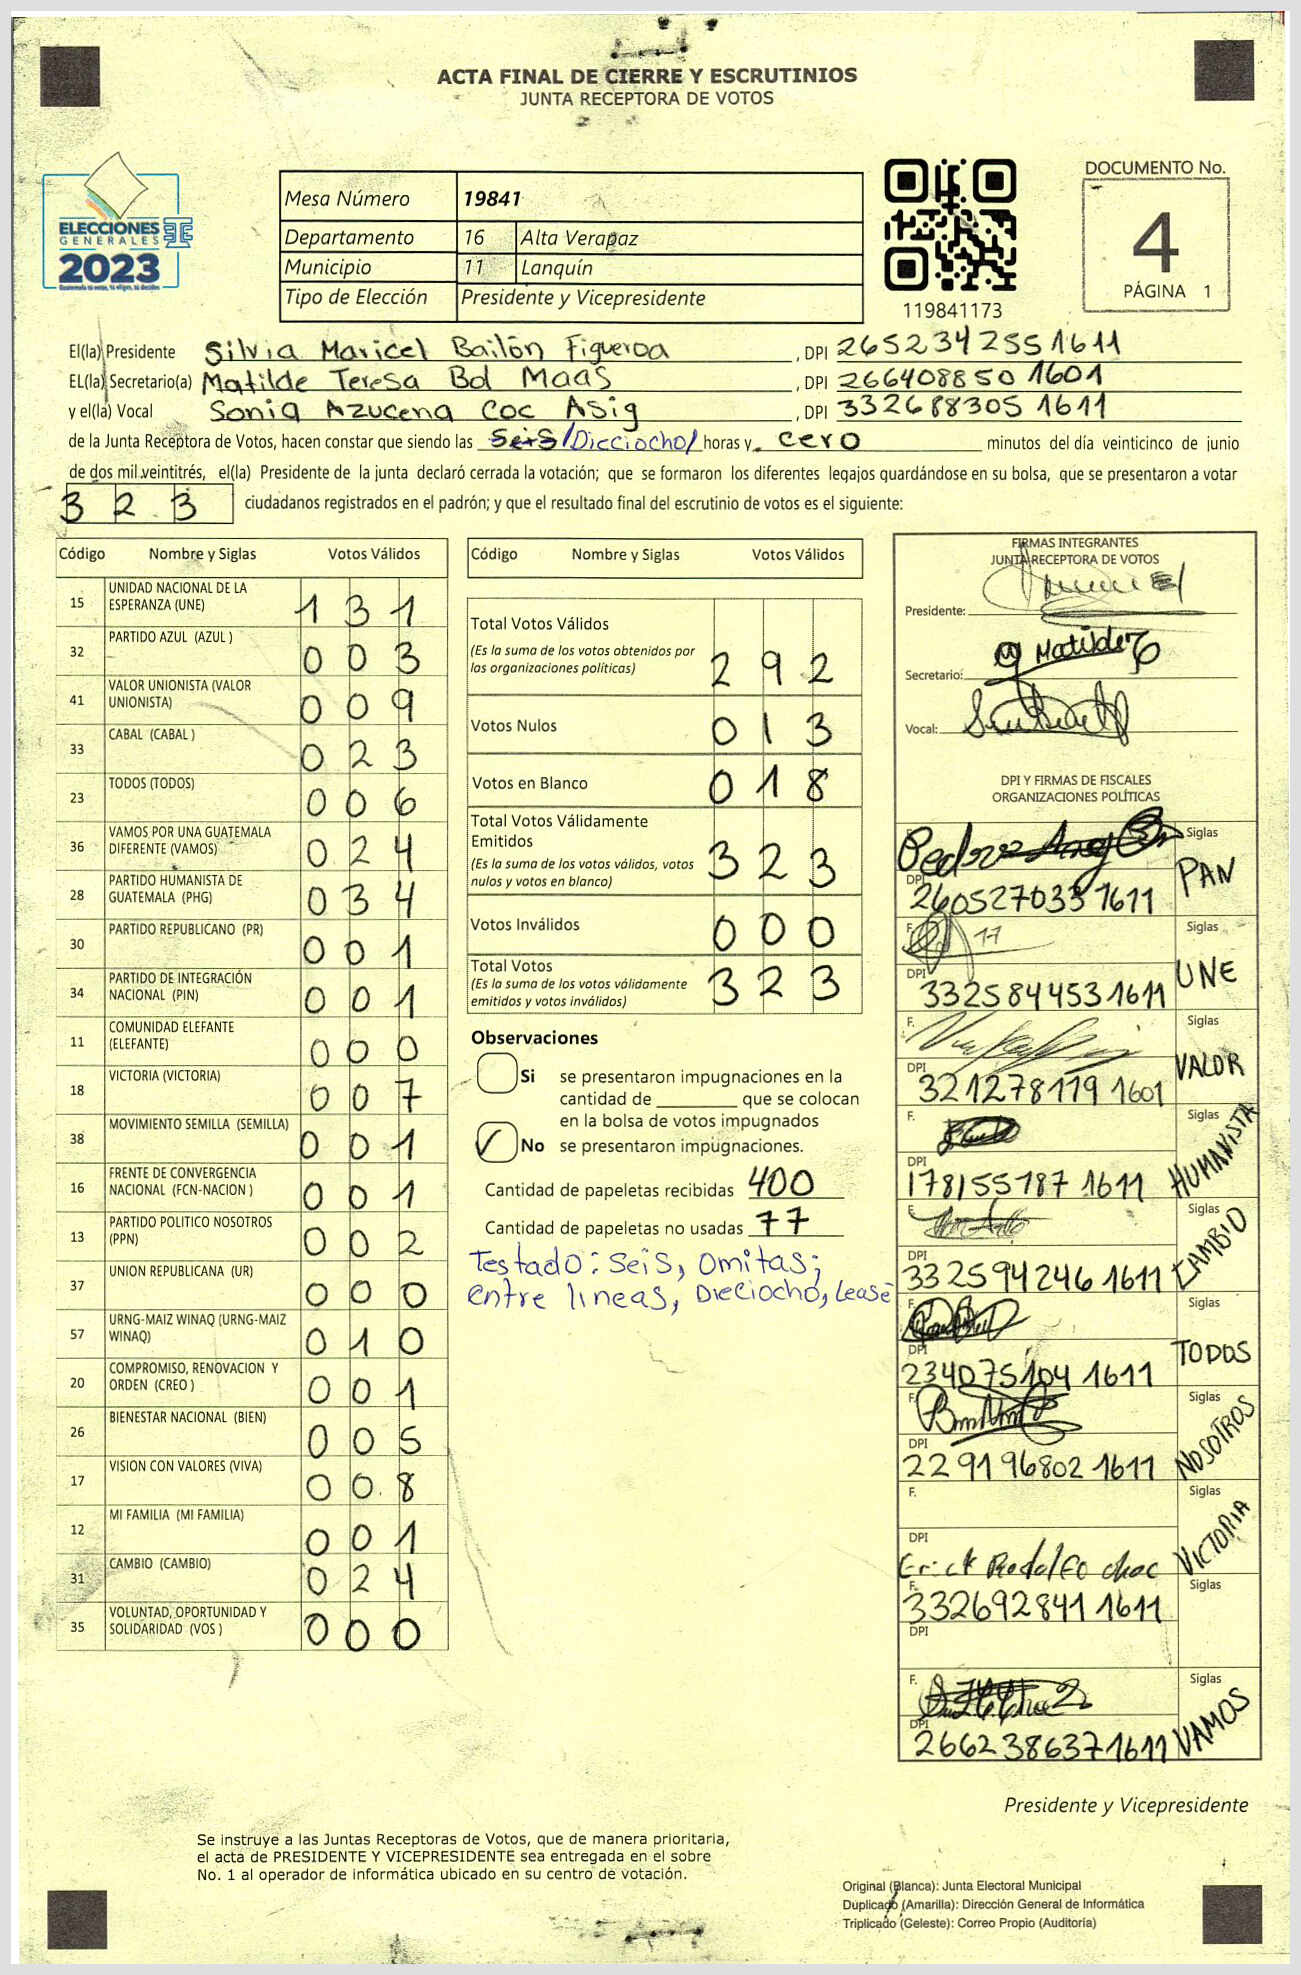 ACTA FINAL DE CIERRE Y ESCRUTINIOS
JUNTA RECEPTORA DE VOTOS
ELECCIONES
GENERALES
2023
Mesa Número 19841
Departamento 16 Alta Verapaz
Municipio 11 Lanquín
Tipo de Elección Presidente y Vicepresidente
119841173
DOCUMENTO No.
4
PÁGINA 1
El(la) Presidente Silvia Maricel Bailón Figueroa, DPI 2652342551611
EL(la) Secretario(a) Matilde Teresa Bol Maas, DPI 2664088501601
y el(la) Vocal Sonia Azucena Coc Asig, DPI 3326883051611
de la Junta Receptora de Votos, hacen constar que siendo las Seis /Dieciocho/ horas y cero minutos del día veinticinco de junio
de dos mil veintitrés, el(la) Presidente de la junta declaró cerrada la votación; que se formaron los diferentes legajos quardándose en su bolsa, que se presentaron a votar
323 ciudadanos registrados en el padrón; y que el resultado final del escrutinio de votos es el siguiente:
Código Nombre y Siglas Votos Válidos
15 UNIDAD NACIONAL DE LA ESPERANZA (UNE) 131
32 PARTIDO AZUL (AZUL ) 003
41 VALOR UNIONISTA (VALOR UNIONISTA) 009
33 CABAL (CABAL ) 023
23 TODOS (TODOS) 006
36 VAMOS POR UNA GUATEMALA DIFERENTE (VAMOS) 024
28 PARTIDO HUMANISTA DE GUATEMALA (PHG) 034
30 PARTIDO REPUBLICANO (PR) 001
34 PARTIDO DE INTEGRACIÓN NACIONAL (PIN) 001
11 COMUNIDAD ELEFANTE (ELEFANTE) 000
18 VICTORIA (VICTORIA) 007
38 MOVIMIENTO SEMILLA (SEMILLA) 001
16 FRENTE DE CONVERGENCIA NACIONAL (FCN-NACION ) 001
13 PARTIDO POLITICO NOSOTROS (PPN) 002
37 UNION REPUBLICANA (UR) 000
57 URNG-MAIZ WINAQ (URNG-MAIZ WINAQ) 010
20 COMPROMISO, RENOVACION Y ORDEN (CREO ) 001
26 BIENESTAR NACIONAL (BIEN) 005
17 VISION CON VALORES (VIVA) 008
12 MI FAMILIA (MI FAMILIA) 001
31 CAMBIO (CAMBIO) 024
35 VOLUNTAD, OPORTUNIDAD Y SOLIDARIDAD (VOS ) 000
Código Nombre y Siglas Votos Válidos
Total Votos Válidos
(Es la suma de los votos obtenidos por las organizaciones políticas) 292
Votos Nulos 013
Votos en Blanco 018
Total Votos Válidamente Emitidos
(Es la suma de los votos válidos, votos nulos y votos en blanco) 323
Votos Inválidos 000
Total Votos
(Es la suma de los votos válidamente emitidos y votos inválidos) 323
Observaciones
Si se presentaron impugnaciones en la
cantidad de ________ que se colocan
en la bolsa de votos impugnados
No se presentaron impugnaciones.
Cantidad de papeletas recibidas 400
Cantidad de papeletas no usadas 77
Testado: Seis, Omitas;
entre lineas, Dieciocho, Lease
FIRMAS INTEGRANTES
JUNTA RECEPTORA DE VOTOS
Presidente:
Secretario: Matilde
Vocal:
DPI Y FIRMAS DE FISCALES
ORGANIZACIONES POLÍTICAS
Siglas PAN
DPI 2605270331611
Siglas UNE
DPI 3325844531611
F. Siglas VALOR
DPI 3212781791601
F. Siglas HUMANISTA
DPI 1781551871611
F. Siglas CAMBIO
DPI 3325942461611
F. Siglas TODOS
DPI 2340751041611
F. Siglas NOSOTROS
DPI 2291968021611
F. Siglas VICTORIA
DPI
Erick Rodolfo choc
F. Siglas
3326928411611
DPI
F. Siglas VAMOS
DPI 2662386371611
Presidente y Vicepresidente
Se instruye a las Juntas Receptoras de Votos, que de manera prioritaria,
el acta de PRESIDENTE Y VICEPRESIDENTE sea entregada en el sobre
No. 1 al operador de informática ubicado en su centro de votación.
Original (Blanca): Junta Electoral Municipal
Duplicado (Amarilla): Dirección General de Informática
Triplicado (Celeste): Correo Propio (Auditoría)